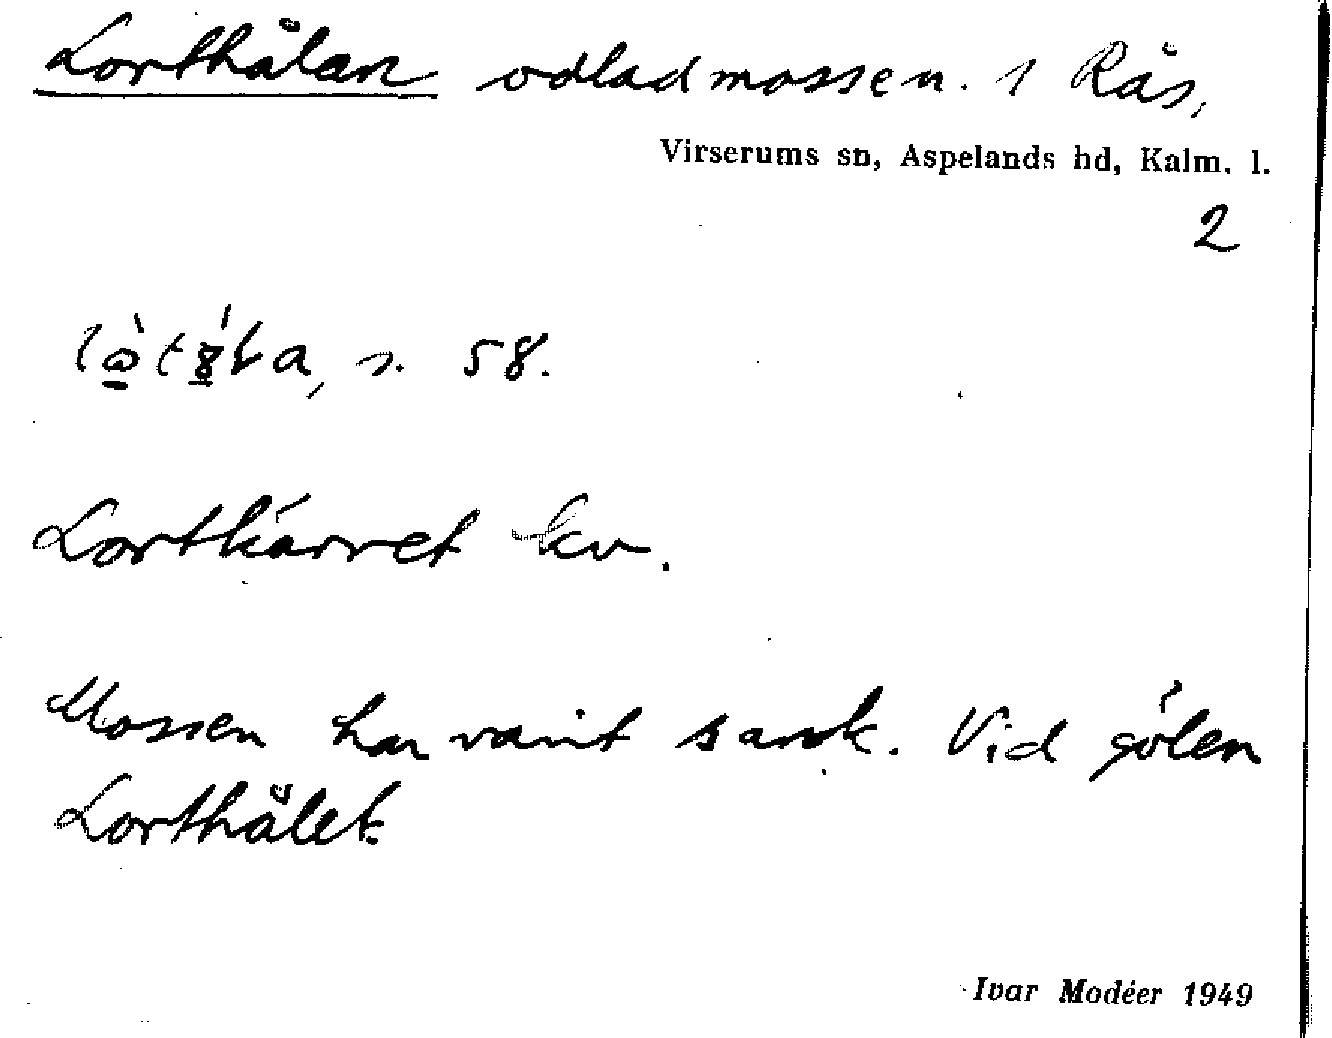 Lorthålan odlad mossen. 1 Rås,
Virserums sn, Aspelands hd, Kalm. l.
2
s. 58.
Lortkärret kv.
Mossen har varit sank. Vid gölen
Lorthålet.
Ivar Modéer 1949